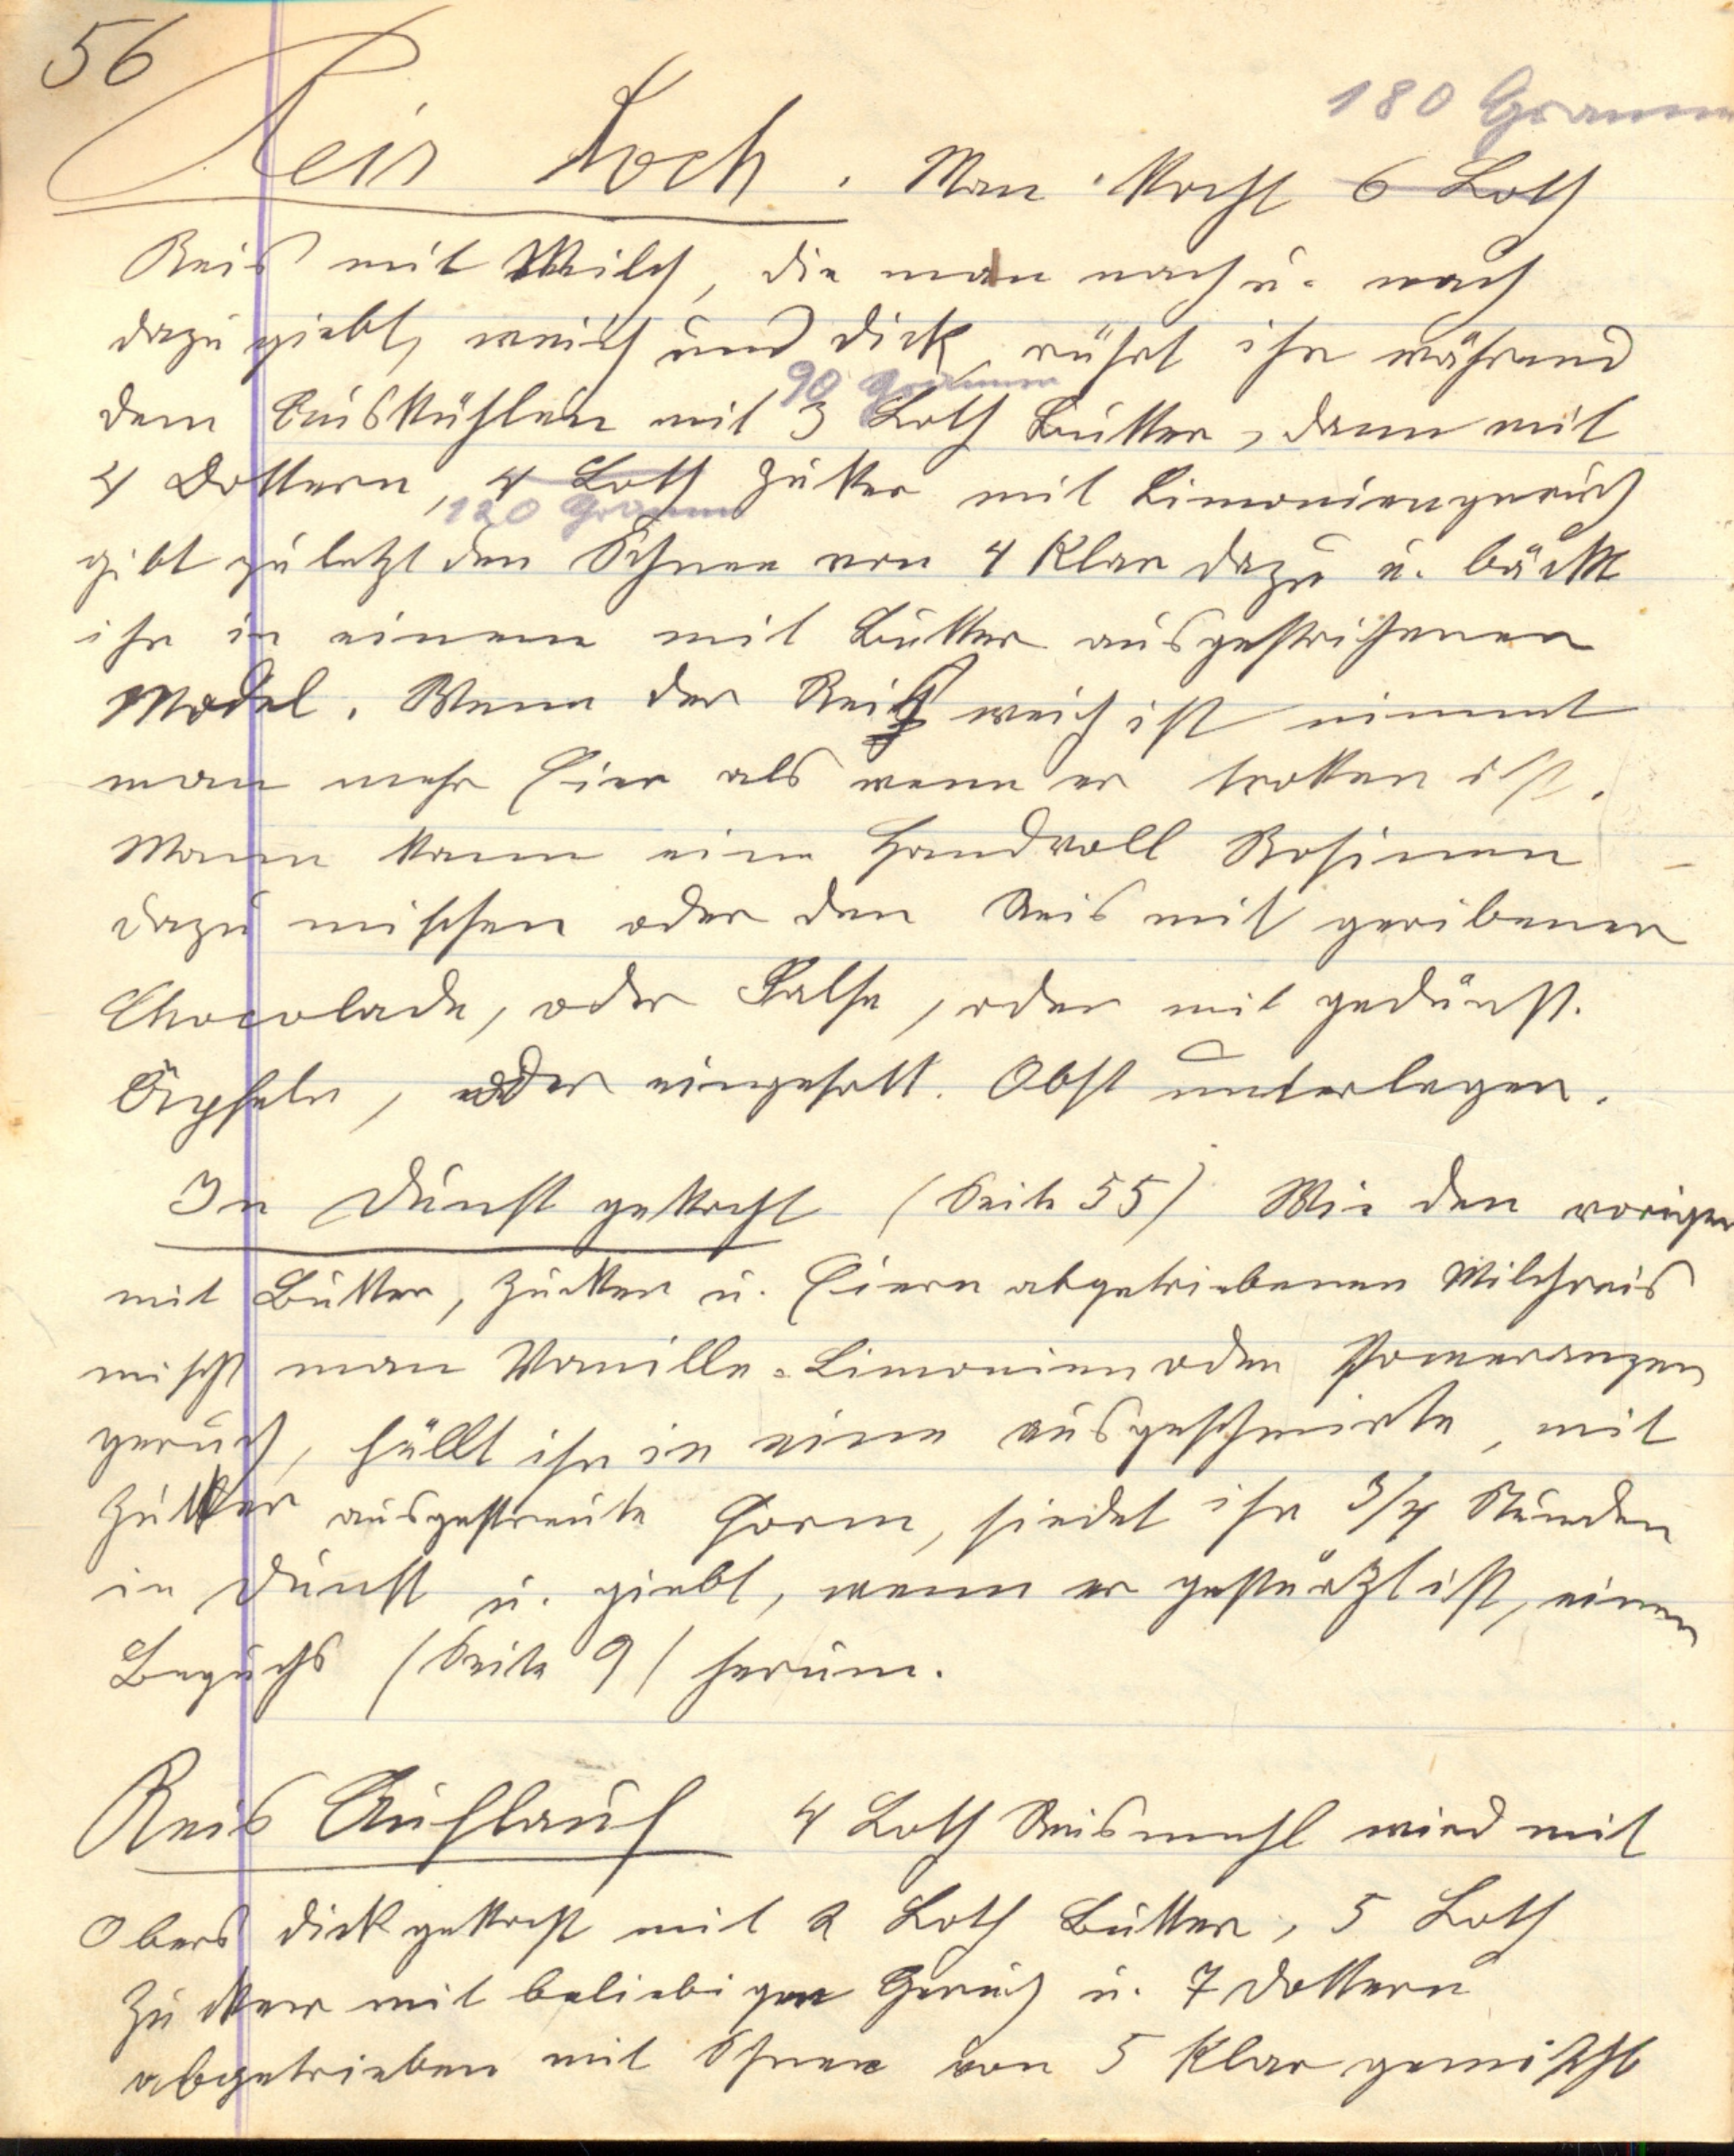 56
180 Gramm
Reis Koch. Man kocht 6 Loth
Reis mit Milch, die man nach u. nach
dazu giebt, weich und dick, rührt ihn während
90 Gramm
dem Auskühlen mit 3 Loth Butter, dann mit
4 Dottern, 4 Loth Zucker mit Limoniengeruch
120 Gramm
gibt zuletzt den Schnee von 4 Klar dazu u. bäckt
ihn in einem mit Butter ausgestrichenen
Model. Wenn der Reis weich ist nimmt
man mehr Eier als wenn er trocken ist.
Mann kann eine Handvoll Rosinen
dazu mischen oder den Reis mit geribener
Chocolade, oder Salse, oder mit gedünst.
Äpfeln, oder eingesott. Obst unterlegen.
In Dunst gekocht (Seite 55) Wie den vorigen
mit Butter, Zucker u. Eiern abgetriebenen Milchreis
mischt man Vanille-Limonien oder Pomeranzen
geruch, füllt ihn in eine ausgeschmirte, mit
Zucker ausgestreute Form, siedet ihn 3/4 Stunden
in Dunst u. giebt, wenn er gestürtzt ist, einen
Beguhs (Seite 9) herum.
Reis Auflauf 4 Loth Reismehl wird mit
Obers dick gekocht mit 2 Loth Butter, 5 Loth
Zucker mit beliebigen Geruch u. 7 Dottern
abgetrieben mit Schnee von 5 Klar gemischt